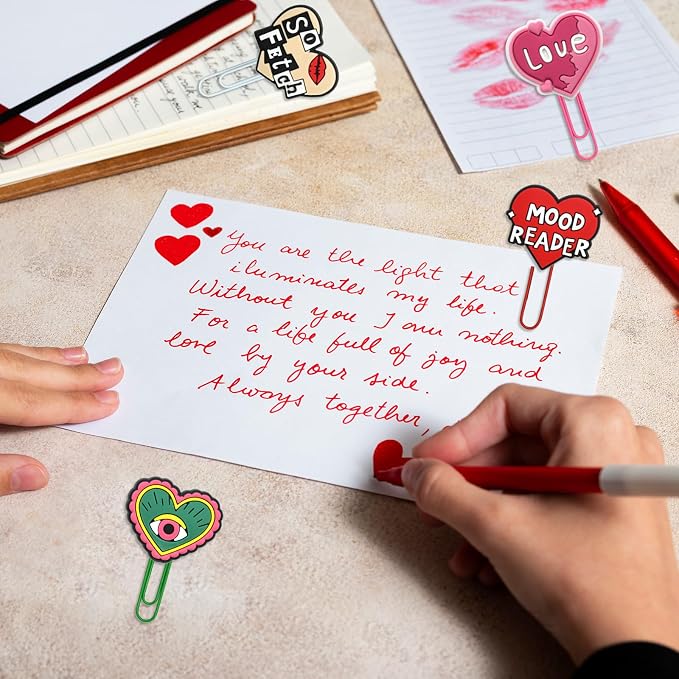 So
Fetch
Love
MOOD
READER
You are the light that
iluminates my life.
Without you I am nothing.
For a life full of joy and
love by your side.
Always together,